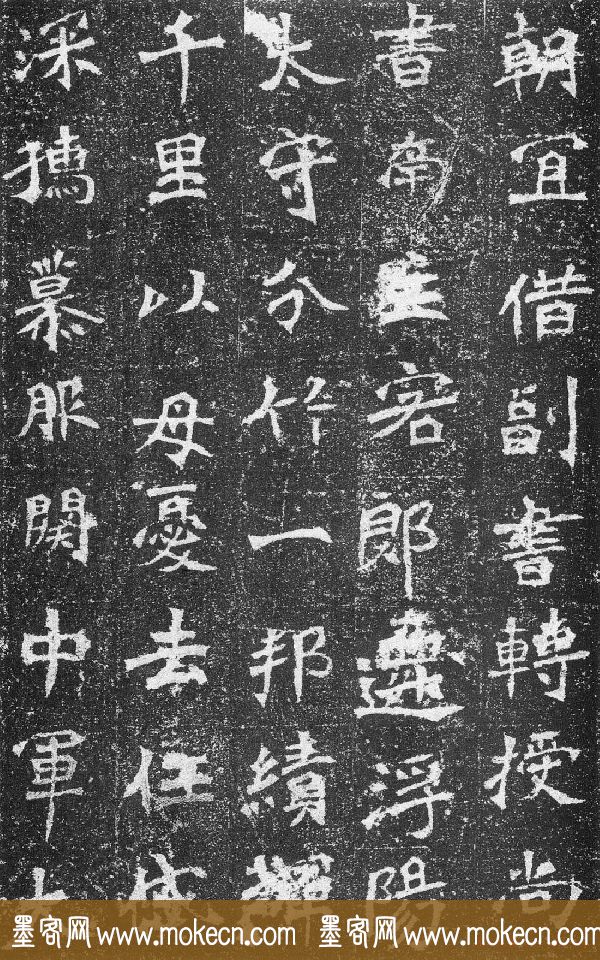 朝宜借副書轉授尚
書南主客郎遷浮陽
太守分竹一邦績
千里以母憂去任
深慕服闋中軍
墨客网 www.mokecn.com 墨客网 www.mokecn.com